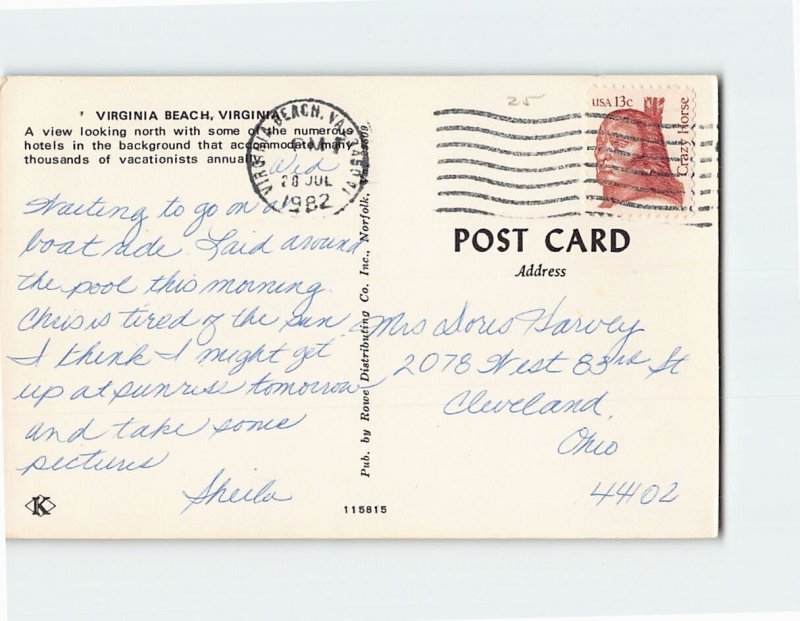 VIRGINIA BEACH, VIRGINIA
A view looking north with some of the numerous
hotels in the background that accommodate many
thousands of vacationists annually.
VIRGINIA BEACH, VA
PM
28 JUL
1982
25
USA 13c
Crazy Horse
Wed
Waiting to go on a
boat ride. Laid around
the pool this morning.
Chris is tired of the sun
I think I might get
up at sunrise tomorrow
and take some
pictures
Sheila
K
Pub. by Rowe Distributing Co. Inc., Norfolk,
115815
POST CARD
Address
Mrs Doris Harvey
2078 West 83rd St
Cleveland,
Ohio
44102